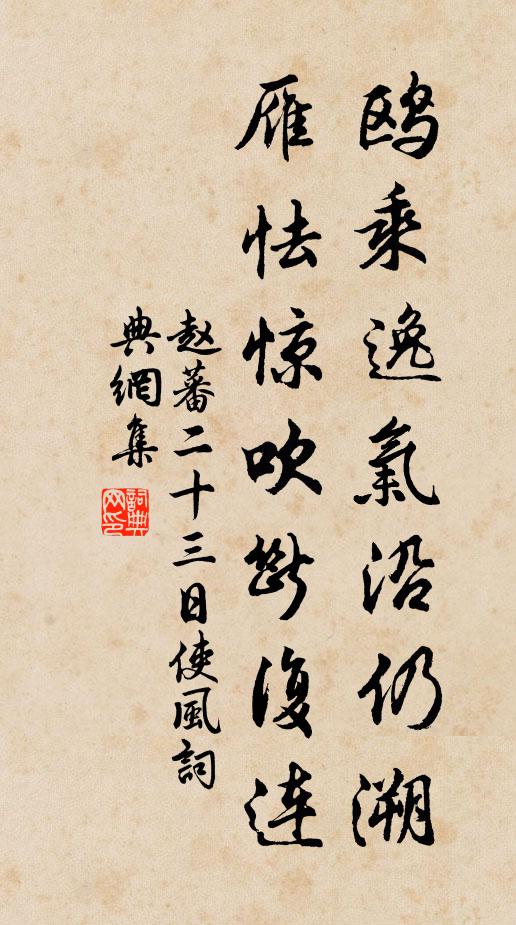 鸥乘逸氣沿仍溯
雁怯惊吹斷復連
赵蕃二十三日使風詞
典網集
詞典网印